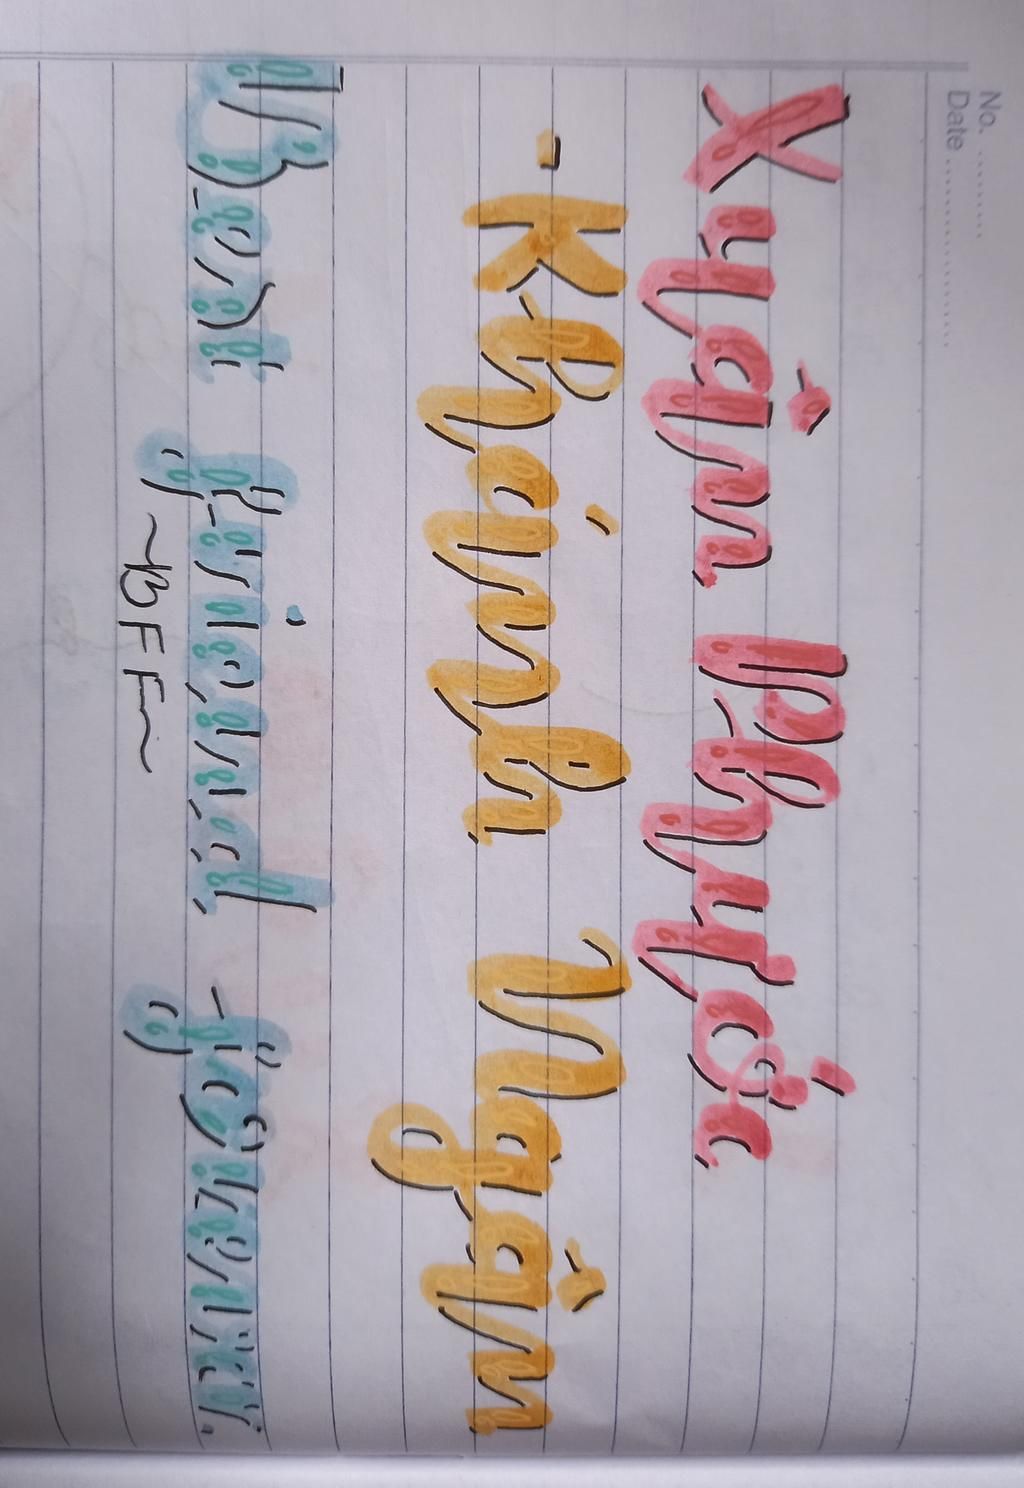 No. ..........
Date .....................
Xuân Phước
- Khánh Ngân
Best friend forever
~BFF~